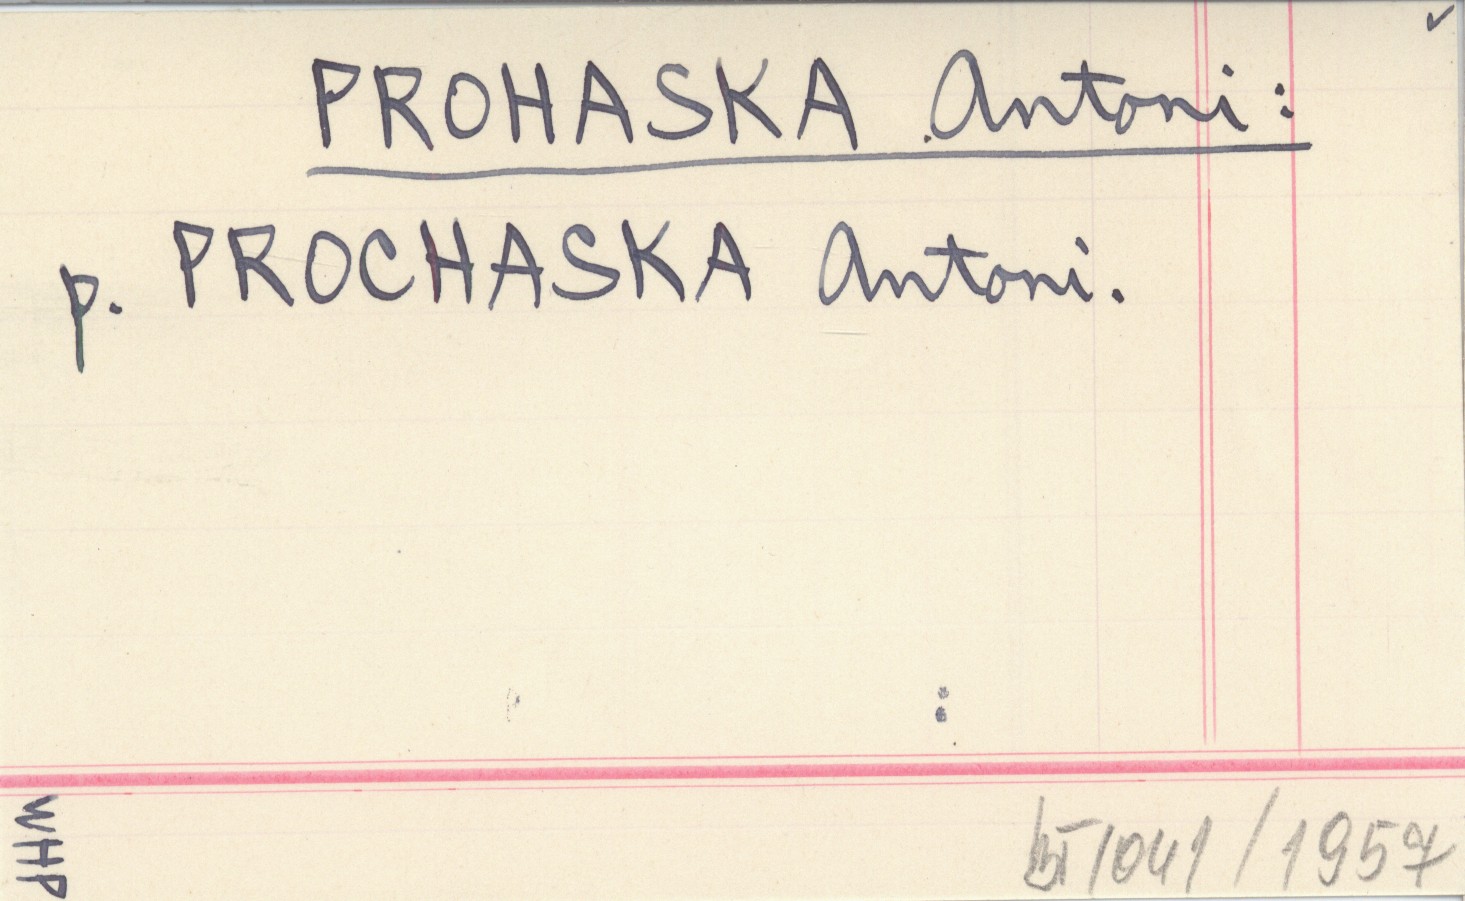 PROHASKA Antoni:
p. PROCHASKA Antoni.
WHP
/041/1957